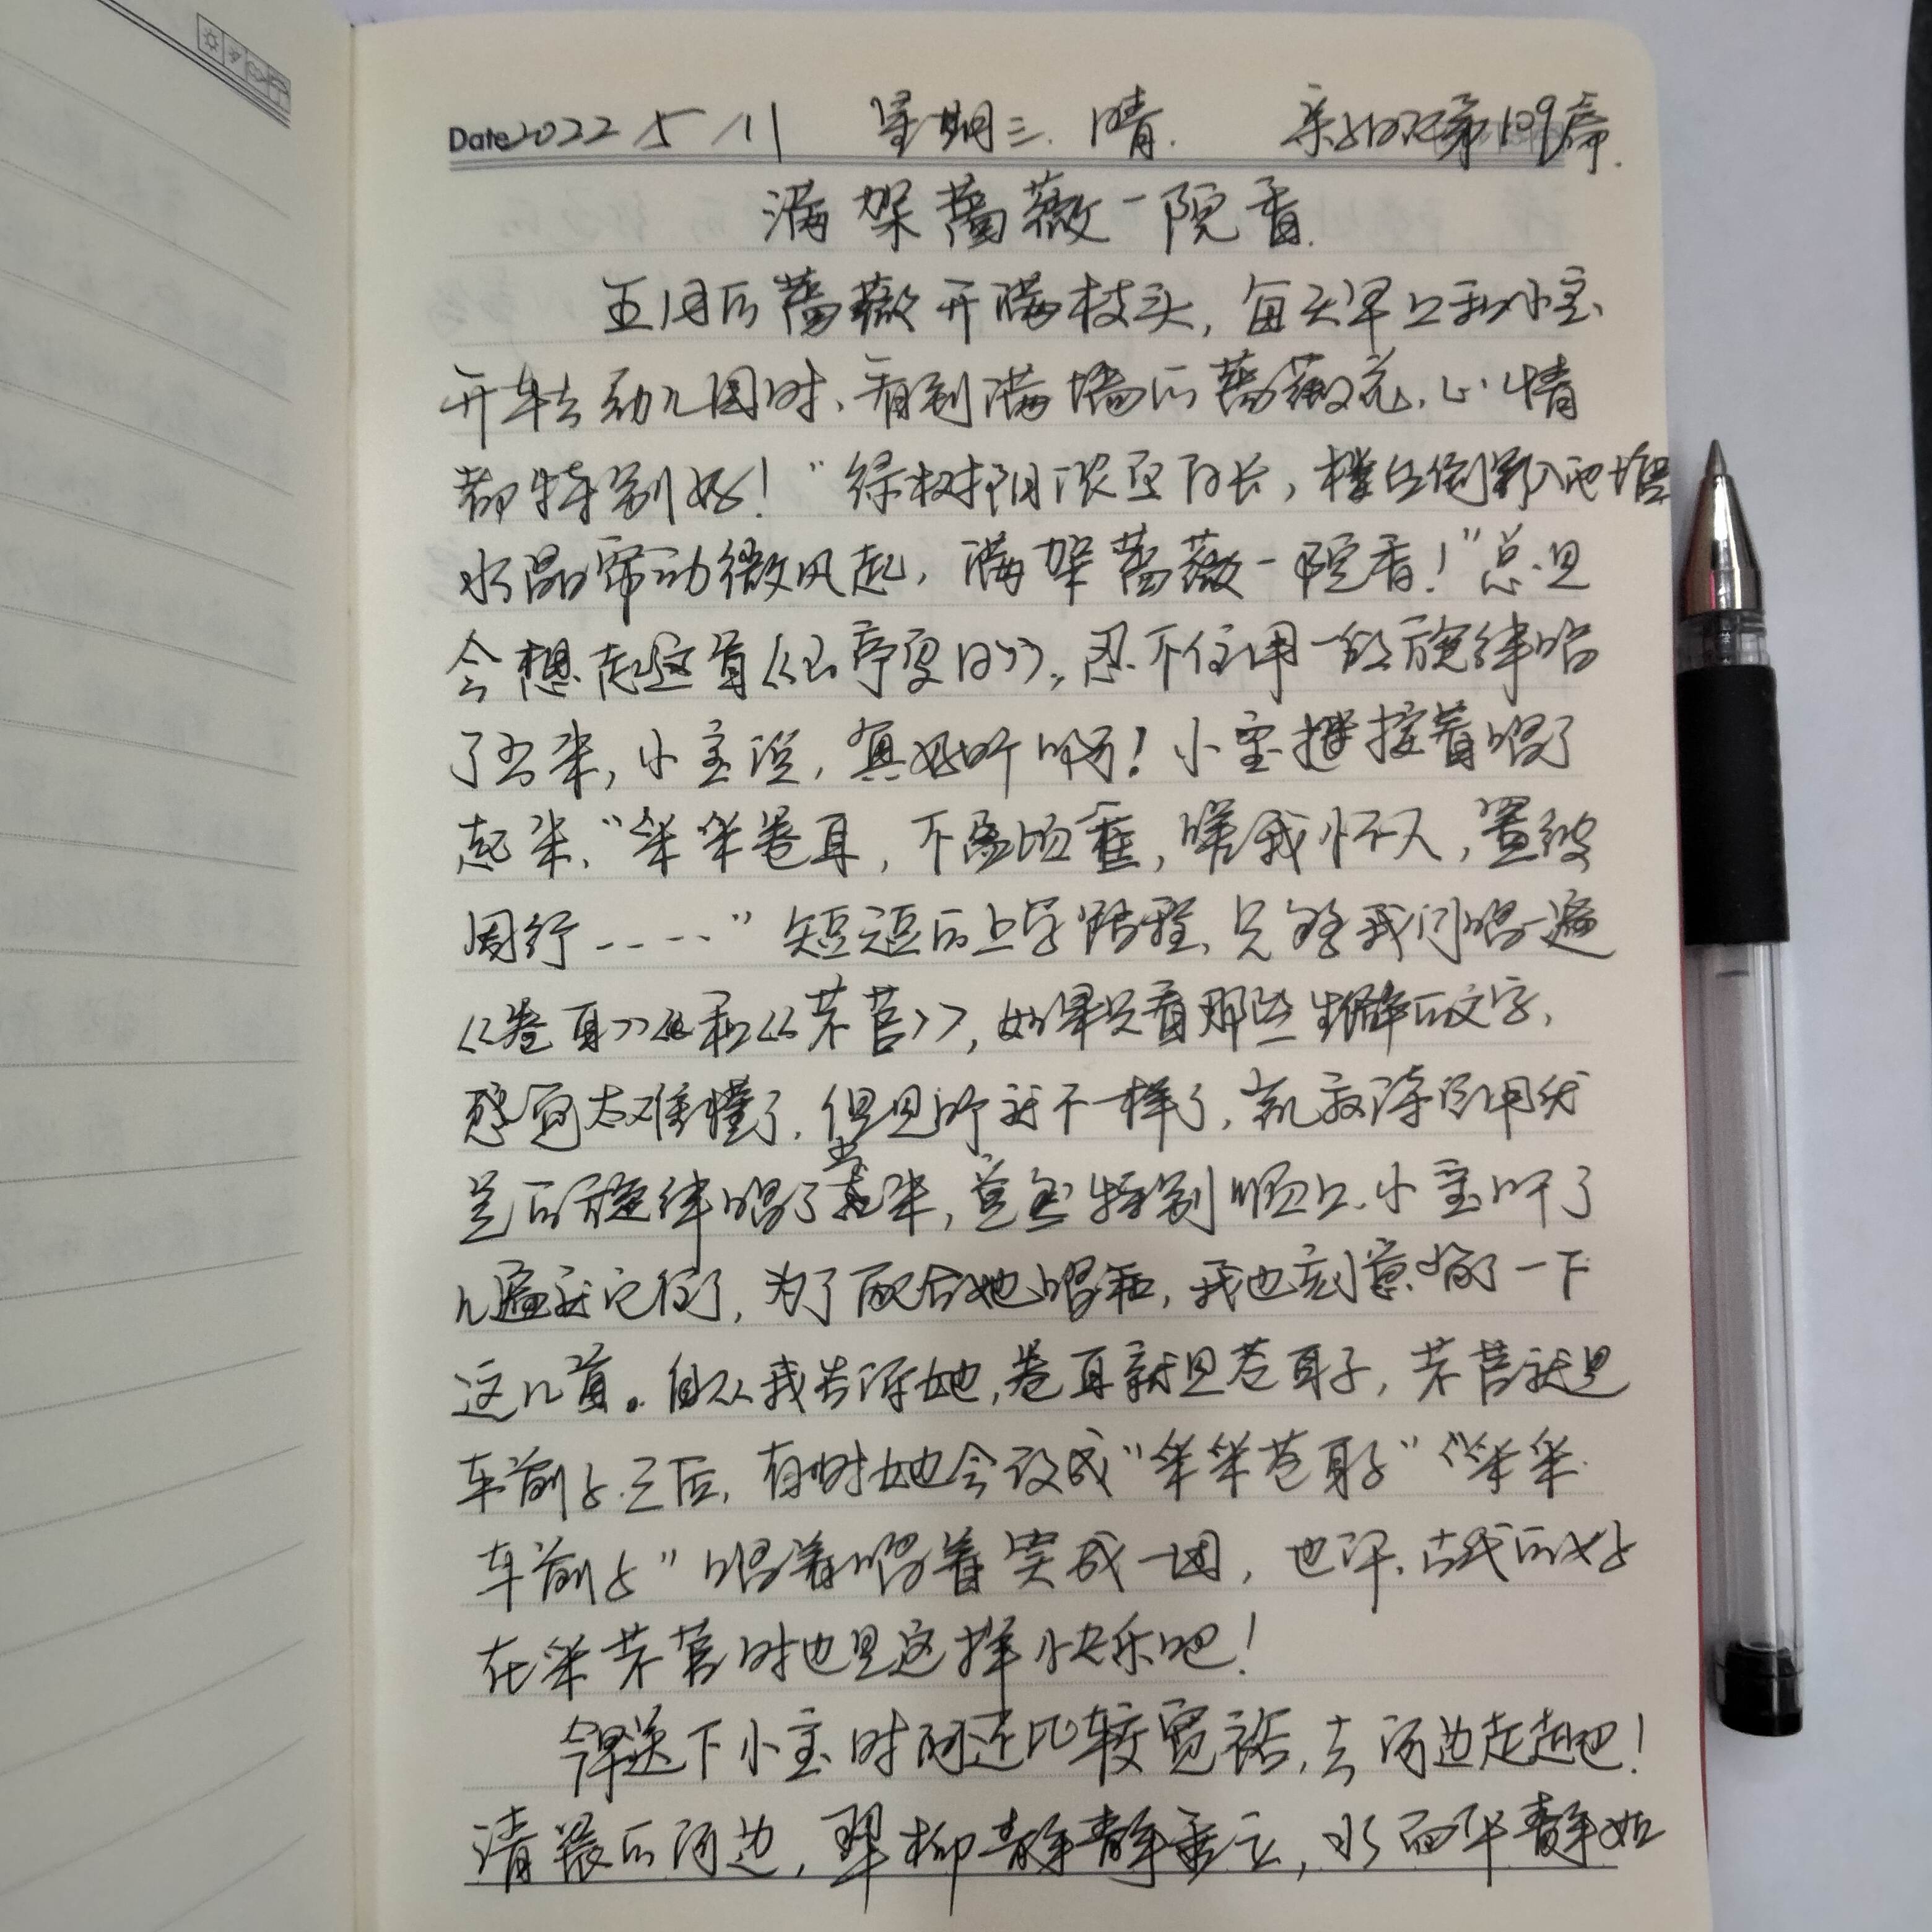 Date 2022 5 11 星期三. 晴. 亲子日记第109篇.
满架蔷薇一院香.
五月的蔷薇开满枝头, 每天早上和小宝
开车去幼儿园时、看到满墙的蔷薇花, 心情
都特别好! "绿树阴浓夏日长, 楼台倒影入池塘
水晶帘动微风起, 满架蔷薇一院香!" 总是
会想起这首《山亭夏日》, 忍不住用一段旋律唱
了出来, 小宝说, 真好听啊! 小宝继接着唱了
起来, "采采卷耳, 不盈顷筐, 嗟我怀人, 置彼
周行----" 短短的上学路程, 只够我们唱一遍
《卷耳》和《芣苢》, 如果只看那些生僻的文字,
感觉太难懂了, 但是听就不一样了, 凯叔诗经用优
美的旋律唱了出来, 竟然特别顺口. 小宝听了
几遍就记住了, 为了配合她唱和, 我也刻意背了一下
这几首。自从我告诉她, 卷耳就是苍耳子, 芣苢就是
车前子之后, 有时她会改成"采采苍耳子" "采采
车前子" 唱着唱着笑成一团, 也许, 古代的女子
在采芣苢时也是这样快乐吧!
今早送下小宝时间还比较宽裕, 去河边走走吧!
清晨的河边, 翠柳静静垂立, 水面平静如